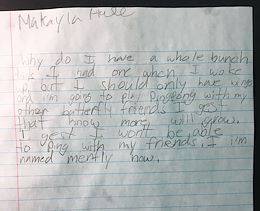 Makayla Hale
Why do I have a whole bunch
I had one when I woke
up but I should only have wings
and i'm going to play Pingpong with my
other batterfly friends I gest
that know more will grow.
I gest I won't be able
to ping with my friends. I i'm
named mently now.